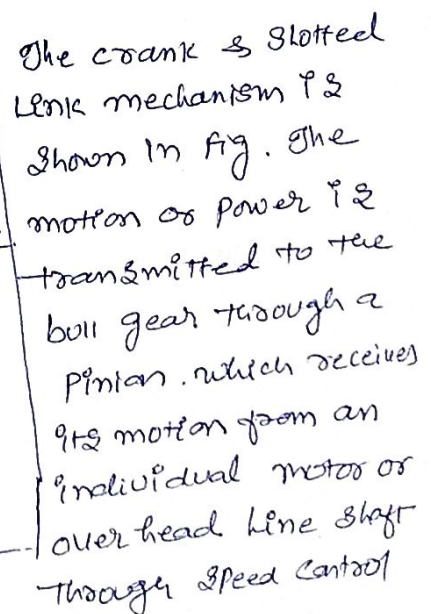 The crank & Slotted
Link mechanism is
Shown in fig. The
motion or power is
transmitted to the
bull gear through a
Pinian. which receives
its motion from an
individual motor or
over head Line Shaft
Through Speed Control